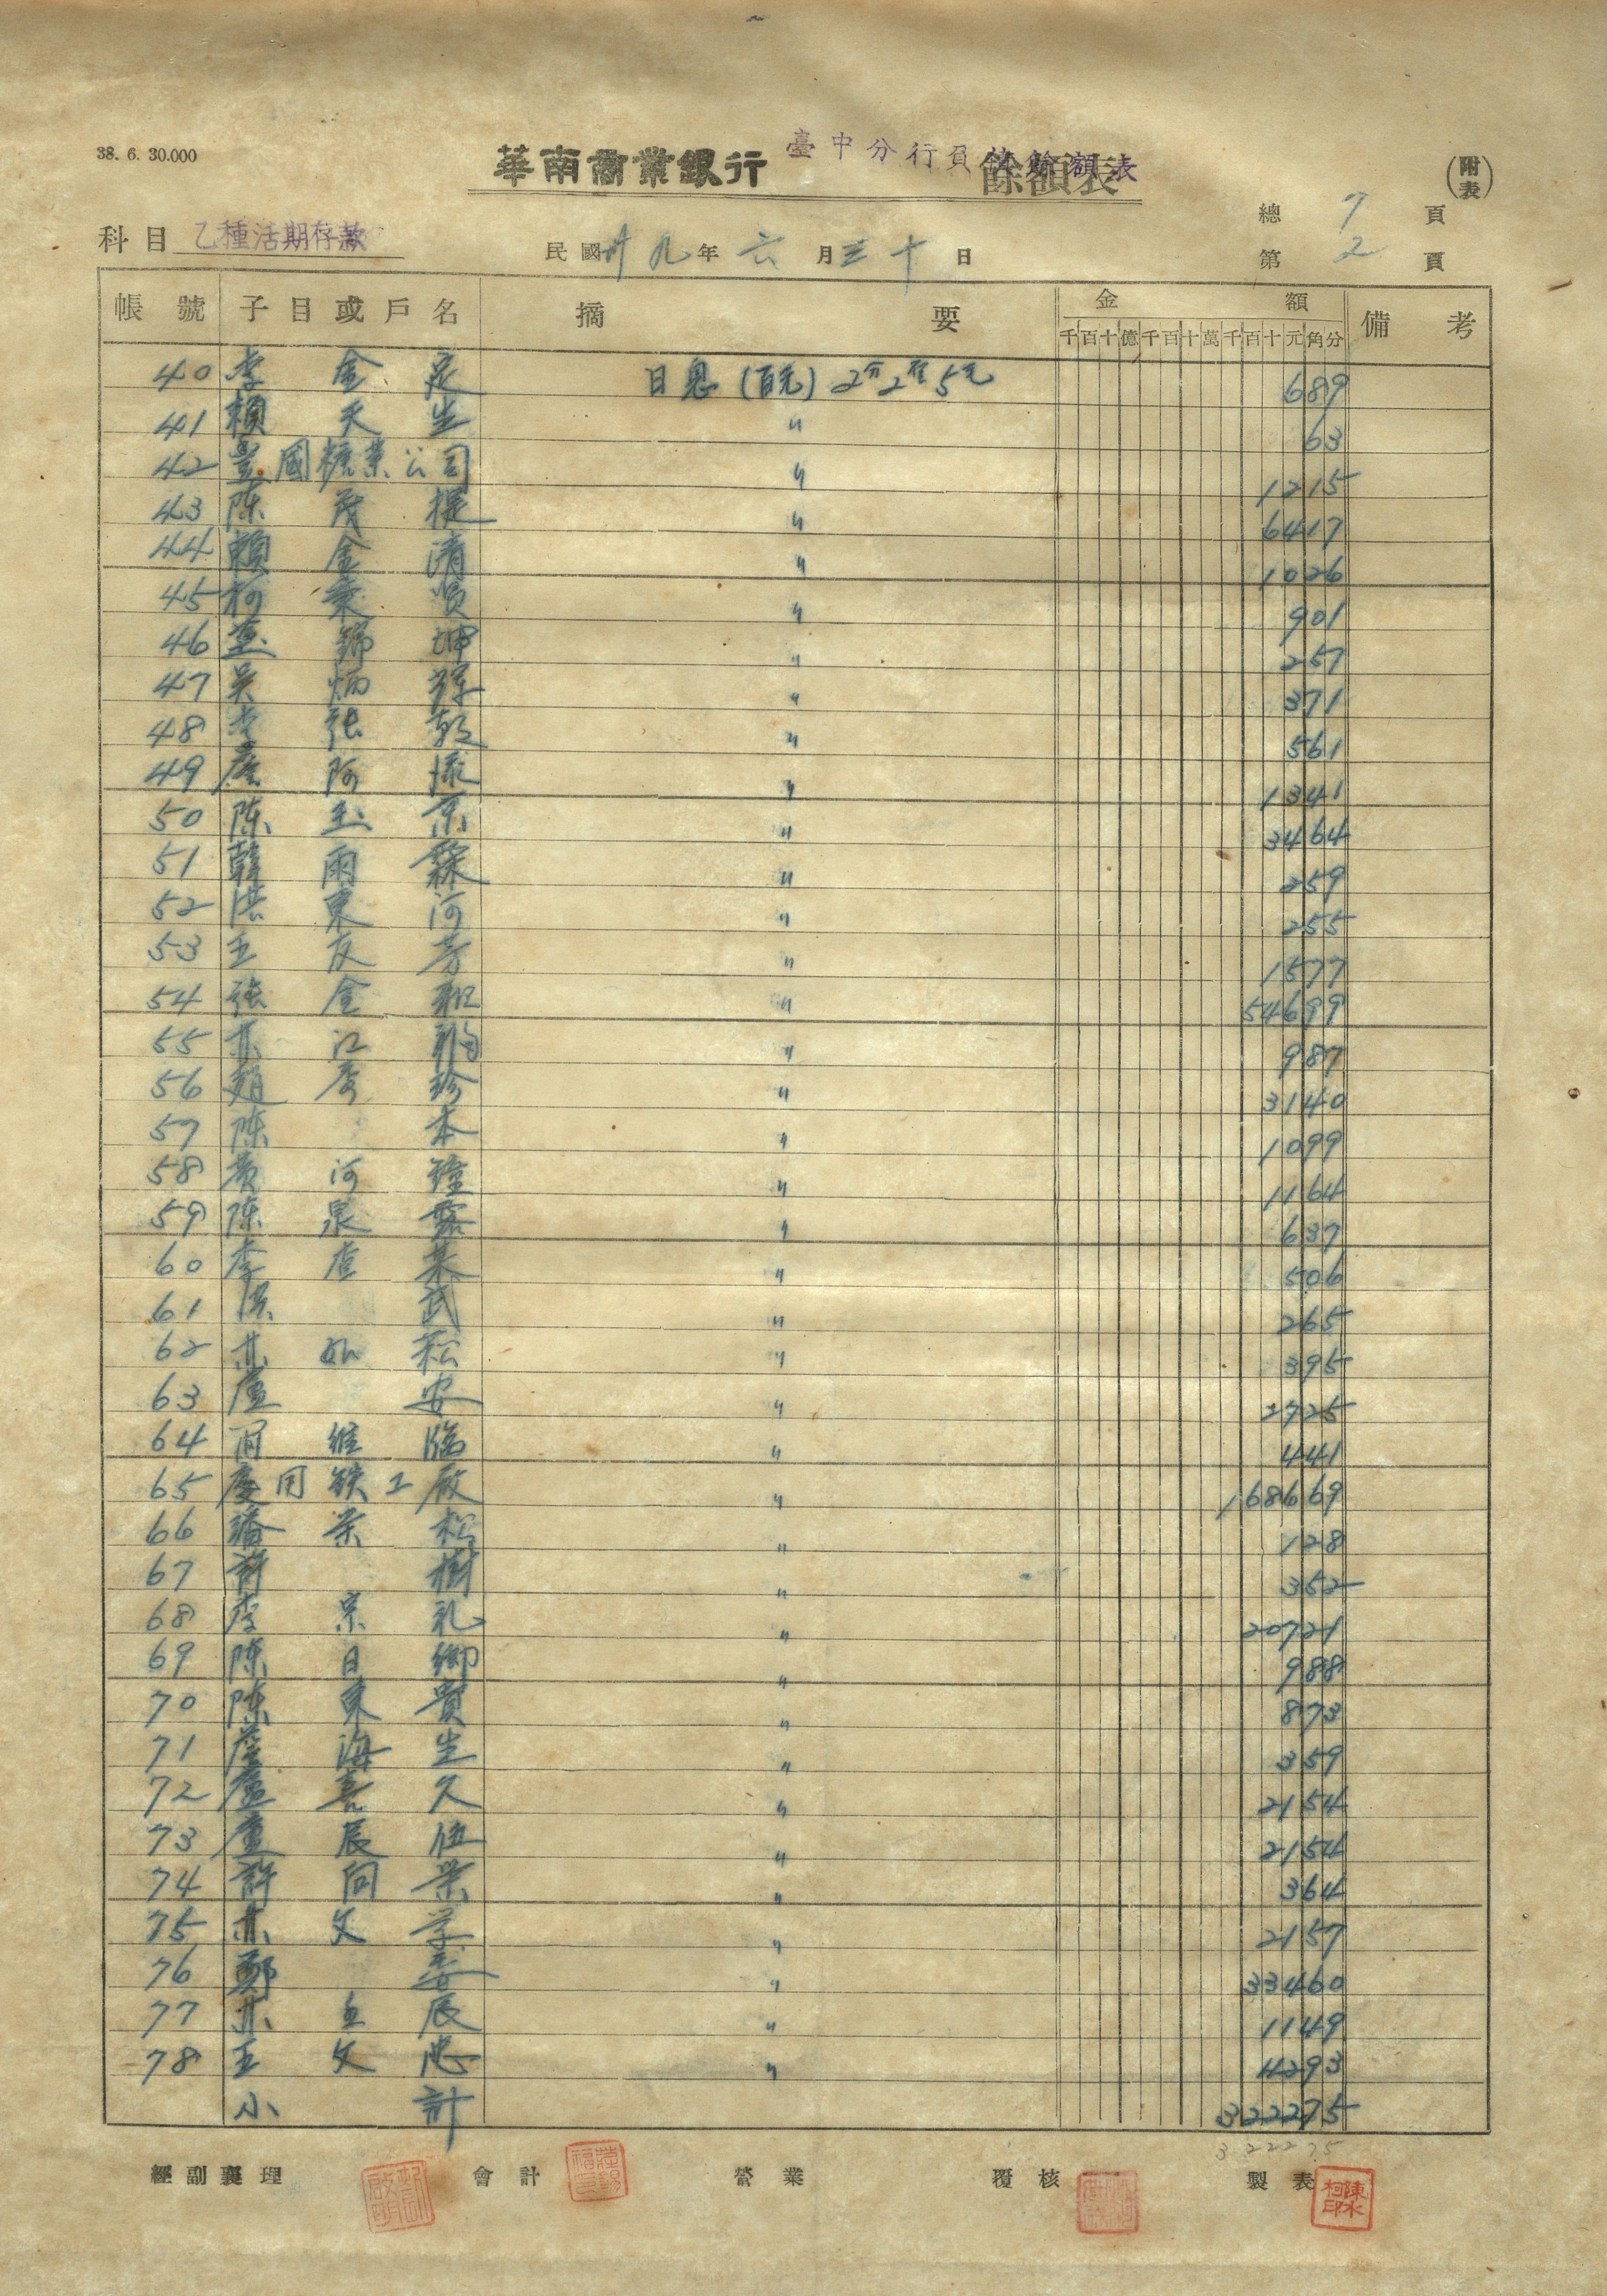 38. 6. 30.000
華南商業銀行 臺中分行負債餘額表 餘額表
(附表)
總 7 頁
科目 乙種活期存款 民國卅九年六月三十日 第 2 頁
帳號 子目或戶名 摘要 金額 備考
千百十億千百十萬千百十元角分
40 李金定 日息(百元)2分2厘5毛 689
41 賴天生 〃 63
42 豐國糖業公司 〃 1215
43 陳茂提 〃 6417
44 賴金清 〃 1026
45 柯秉賢 〃 901
46 錦坤 〃 257
47 吳炳 〃 371
48 〃 561
49 詹阿 〃 1341
50 陳玉京 〃 3464
51 韓雨霖 〃 259
52 洪東河 〃 255
53 王友芳 〃 1577
54 張金 〃 54699
55 林江 〃 987
56 趙秀珍 〃 3140
57 陳本 〃 1099
58 黃河鐘 〃 1164
59 陳泉露 〃 637
60 李 〃 506
61 洪武 〃 265
62 林如松 〃 395
63 盧安 〃 2725
64 維臨 〃 441
65 慶同鉄工廠 〃 168669
66 潘荣松 〃 128
67 許樹 〃 352
68 李宗礼 〃 20721
69 陳日卿 〃 988
70 陳東貴 〃 873
71 詹海生 〃 359
72 盧喜久 〃 2154
73 盧辰伍 〃 2154
74 許向榮 〃 364
75 林文学 〃 2157
76 鄭 〃 33460
77 林玉辰 〃 1149
78 王文忠 〃 4293
小計 322275
322275
經副襄理 會計 營業 覆核 製表 陳水柯印